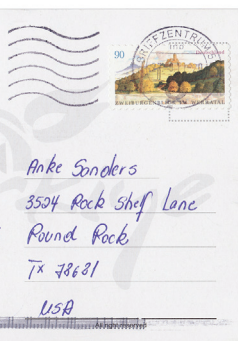 BRIEFZENTRUM
90
ZWEIBURGENBLICK IM WERRATAL
Anke Sanders
3524 Rock Shelf Lane
Round Rock
Tx 78681
USA